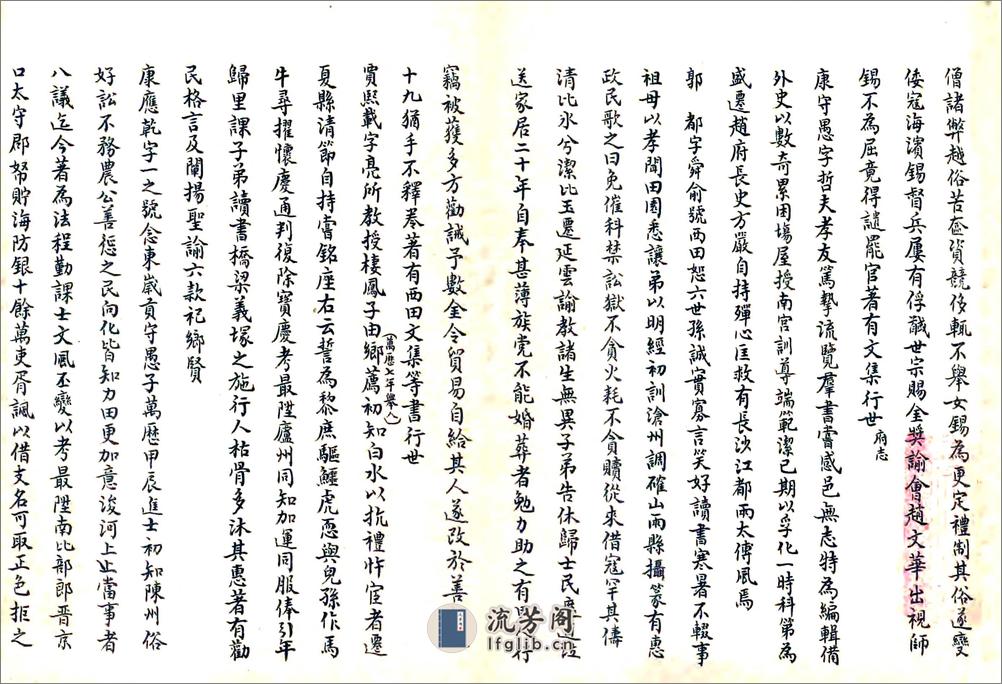 僧諸弊越俗苦奩貲競侈輒不舉女錫為更定禮制其俗遂變
倭寇海濱錫督兵屢有俘馘世宗賜金獎諭會趙文華出視師
錫不為屈竟得譴罷官著有文集行世府志
康守愚字哲夫孝友篤摯流覽羣書嘗感邑無志特為編輯備
外史以數奇累困塲屋授南宮訓導端範潔己期以孚化一時科第為
盛遷趙府長史方嚴自持殫心匡救有長沙江都兩太傅風焉
郭 都字舜俞號西田恕六世孫誠實寡言笑好讀書寒暑不輟事
祖母以孝聞田園悉讓弟以明經初訓滄州調確山兩縣攝篆有惠
政民歌之曰免催科禁訟獄不貪火耗不貪贖從來借寇罕其儔
清比氷兮潔比玉遷延雲諭教諸生無異子弟告休歸士民
送家居二十年自奉甚薄族党不能婚葬者勉力助之有 行
竊被獲多方勸誡予數金令貿易自給其人遂改於善
十九猶手不釋卷著有西田文集等書行世
賈熙載字亮所教授棲鳳子由鄉薦(萬歷七年舉人)初知白水以抗禮忤宦者遷
夏縣清節自持嘗銘座右云誓為黎庶驅鱷虎恧與兒孫作馬
牛尋擢懷慶通判復除寶慶考最陞廬州同知加運同服俸引年
歸里課子弟讀書橋梁義塚之施行人枯骨多沐其惠著有勸
民格言及闡揚聖諭六款祀鄉賢
康應乾字一之號念東歲貢守愚子萬歷甲辰進士初知陳州俗
好訟不務農公善懲之民向化皆知力田更加意浚河上止當事者
八議迄今著為法程勤課士文風丕變以考最陞南比部郎晋京
口太守郡帑貯海防銀十餘萬吏胥諷以借支名可取正色拒之
流芳阁
lfglib.cn